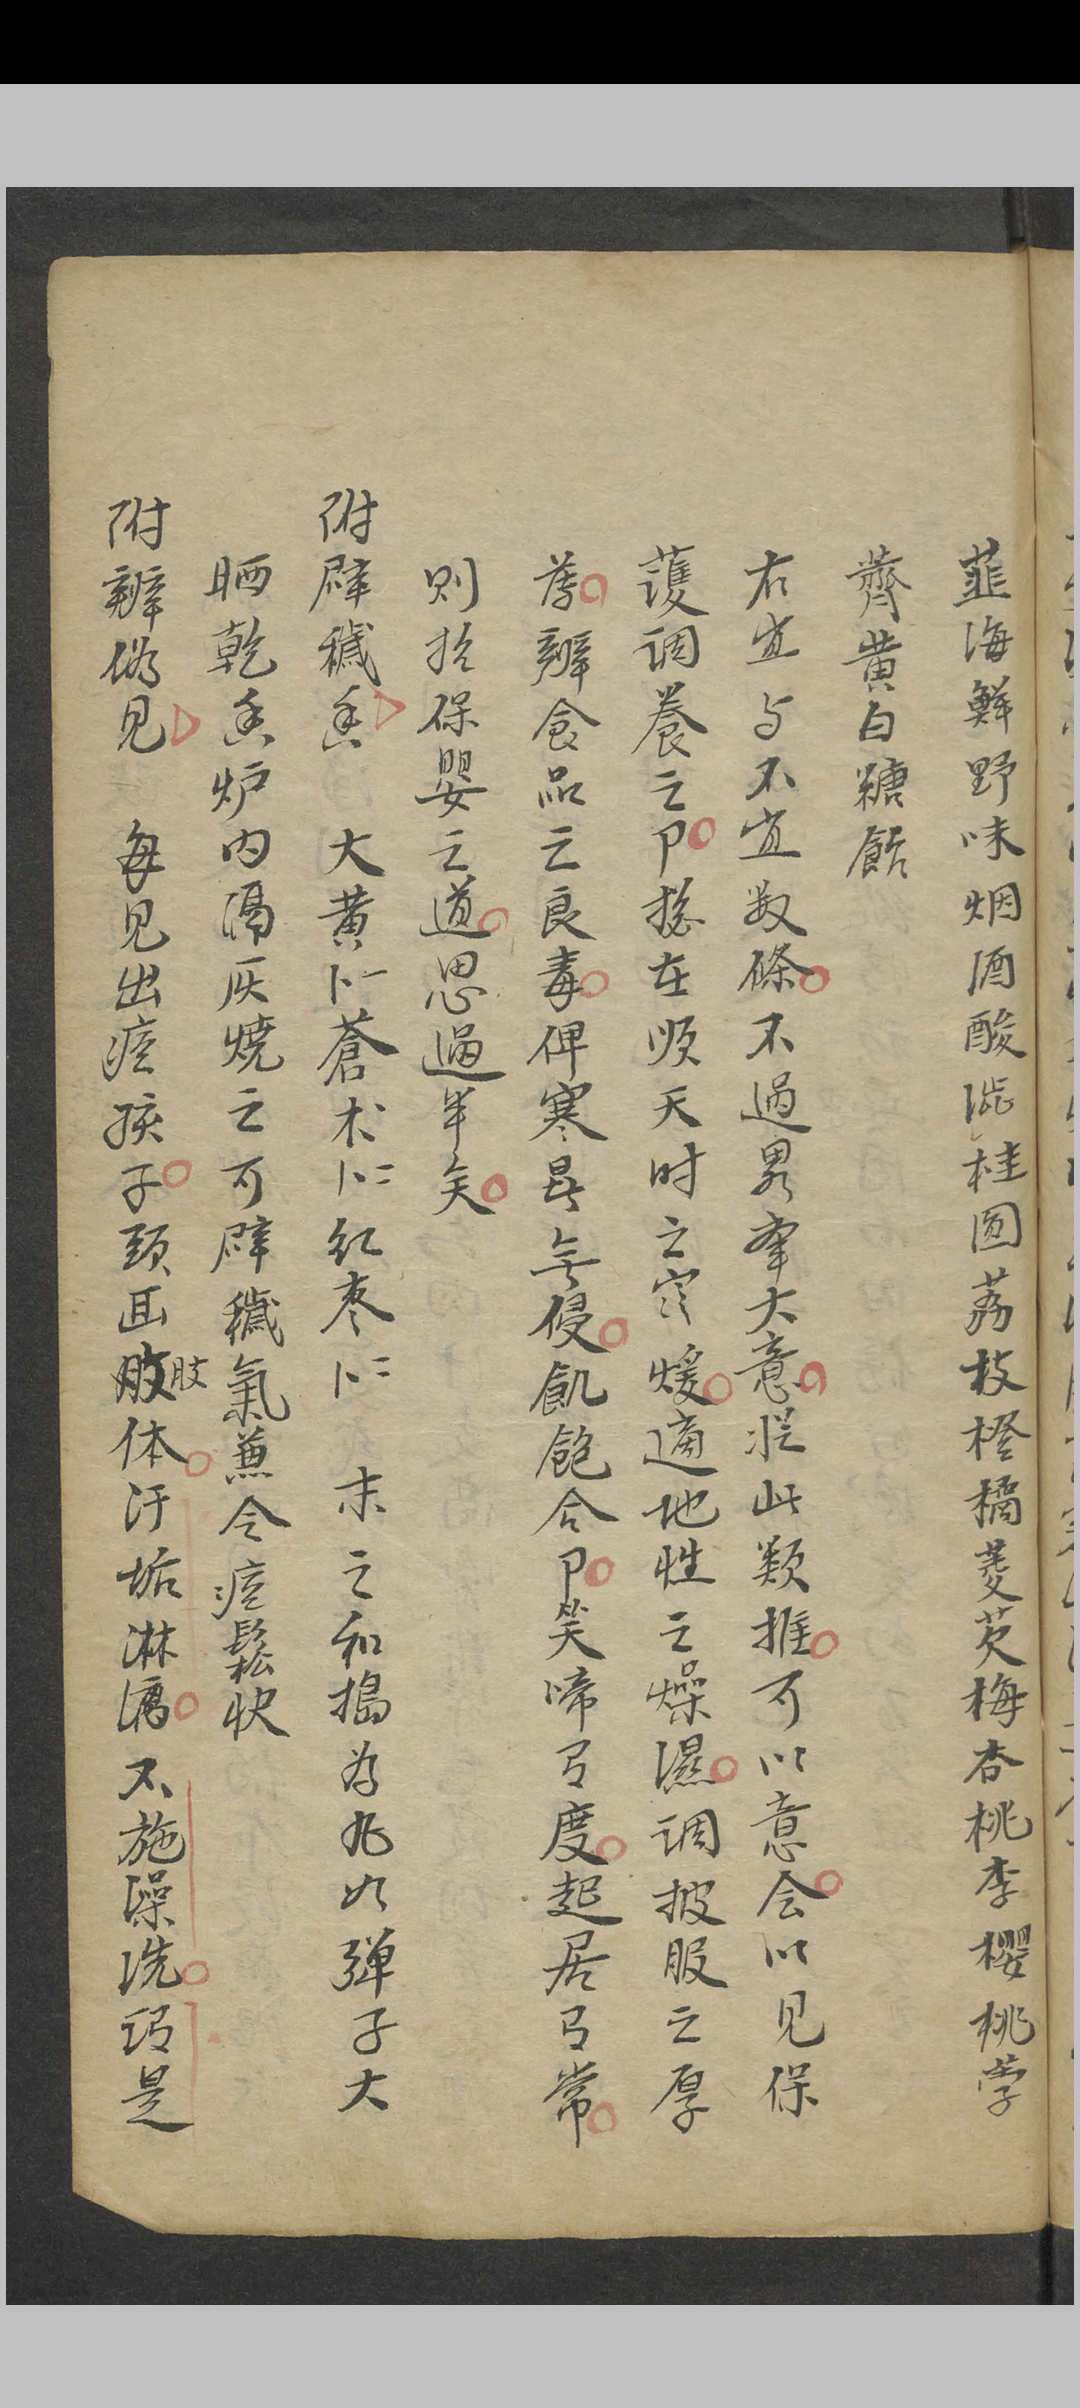 韮海鮮野味烟酒酸澁桂圓荔枝橙橘菱芡梅杏桃李櫻桃荸
薺黄白糖飴
右宜与不宜数條不過畧舉大意從此類推可以意会以見保
護調養之卩揔在順天时之寒煖適地性之燥濕调披服之厚
薄辨食品之良毒俾寒暑無侵飢飽合卩笑啼有度起居有常
则於保嬰之道思過半矣
附辟穢香 大黄 蒼术 红枣 末之和搗為丸如彈子大
晒乾香炉内隔灰燒之可辟穢氣兼令痘鬆快
附辨俗見 每見出痘孩子頭面肢体汗垢淋漓不施澡洗謂是